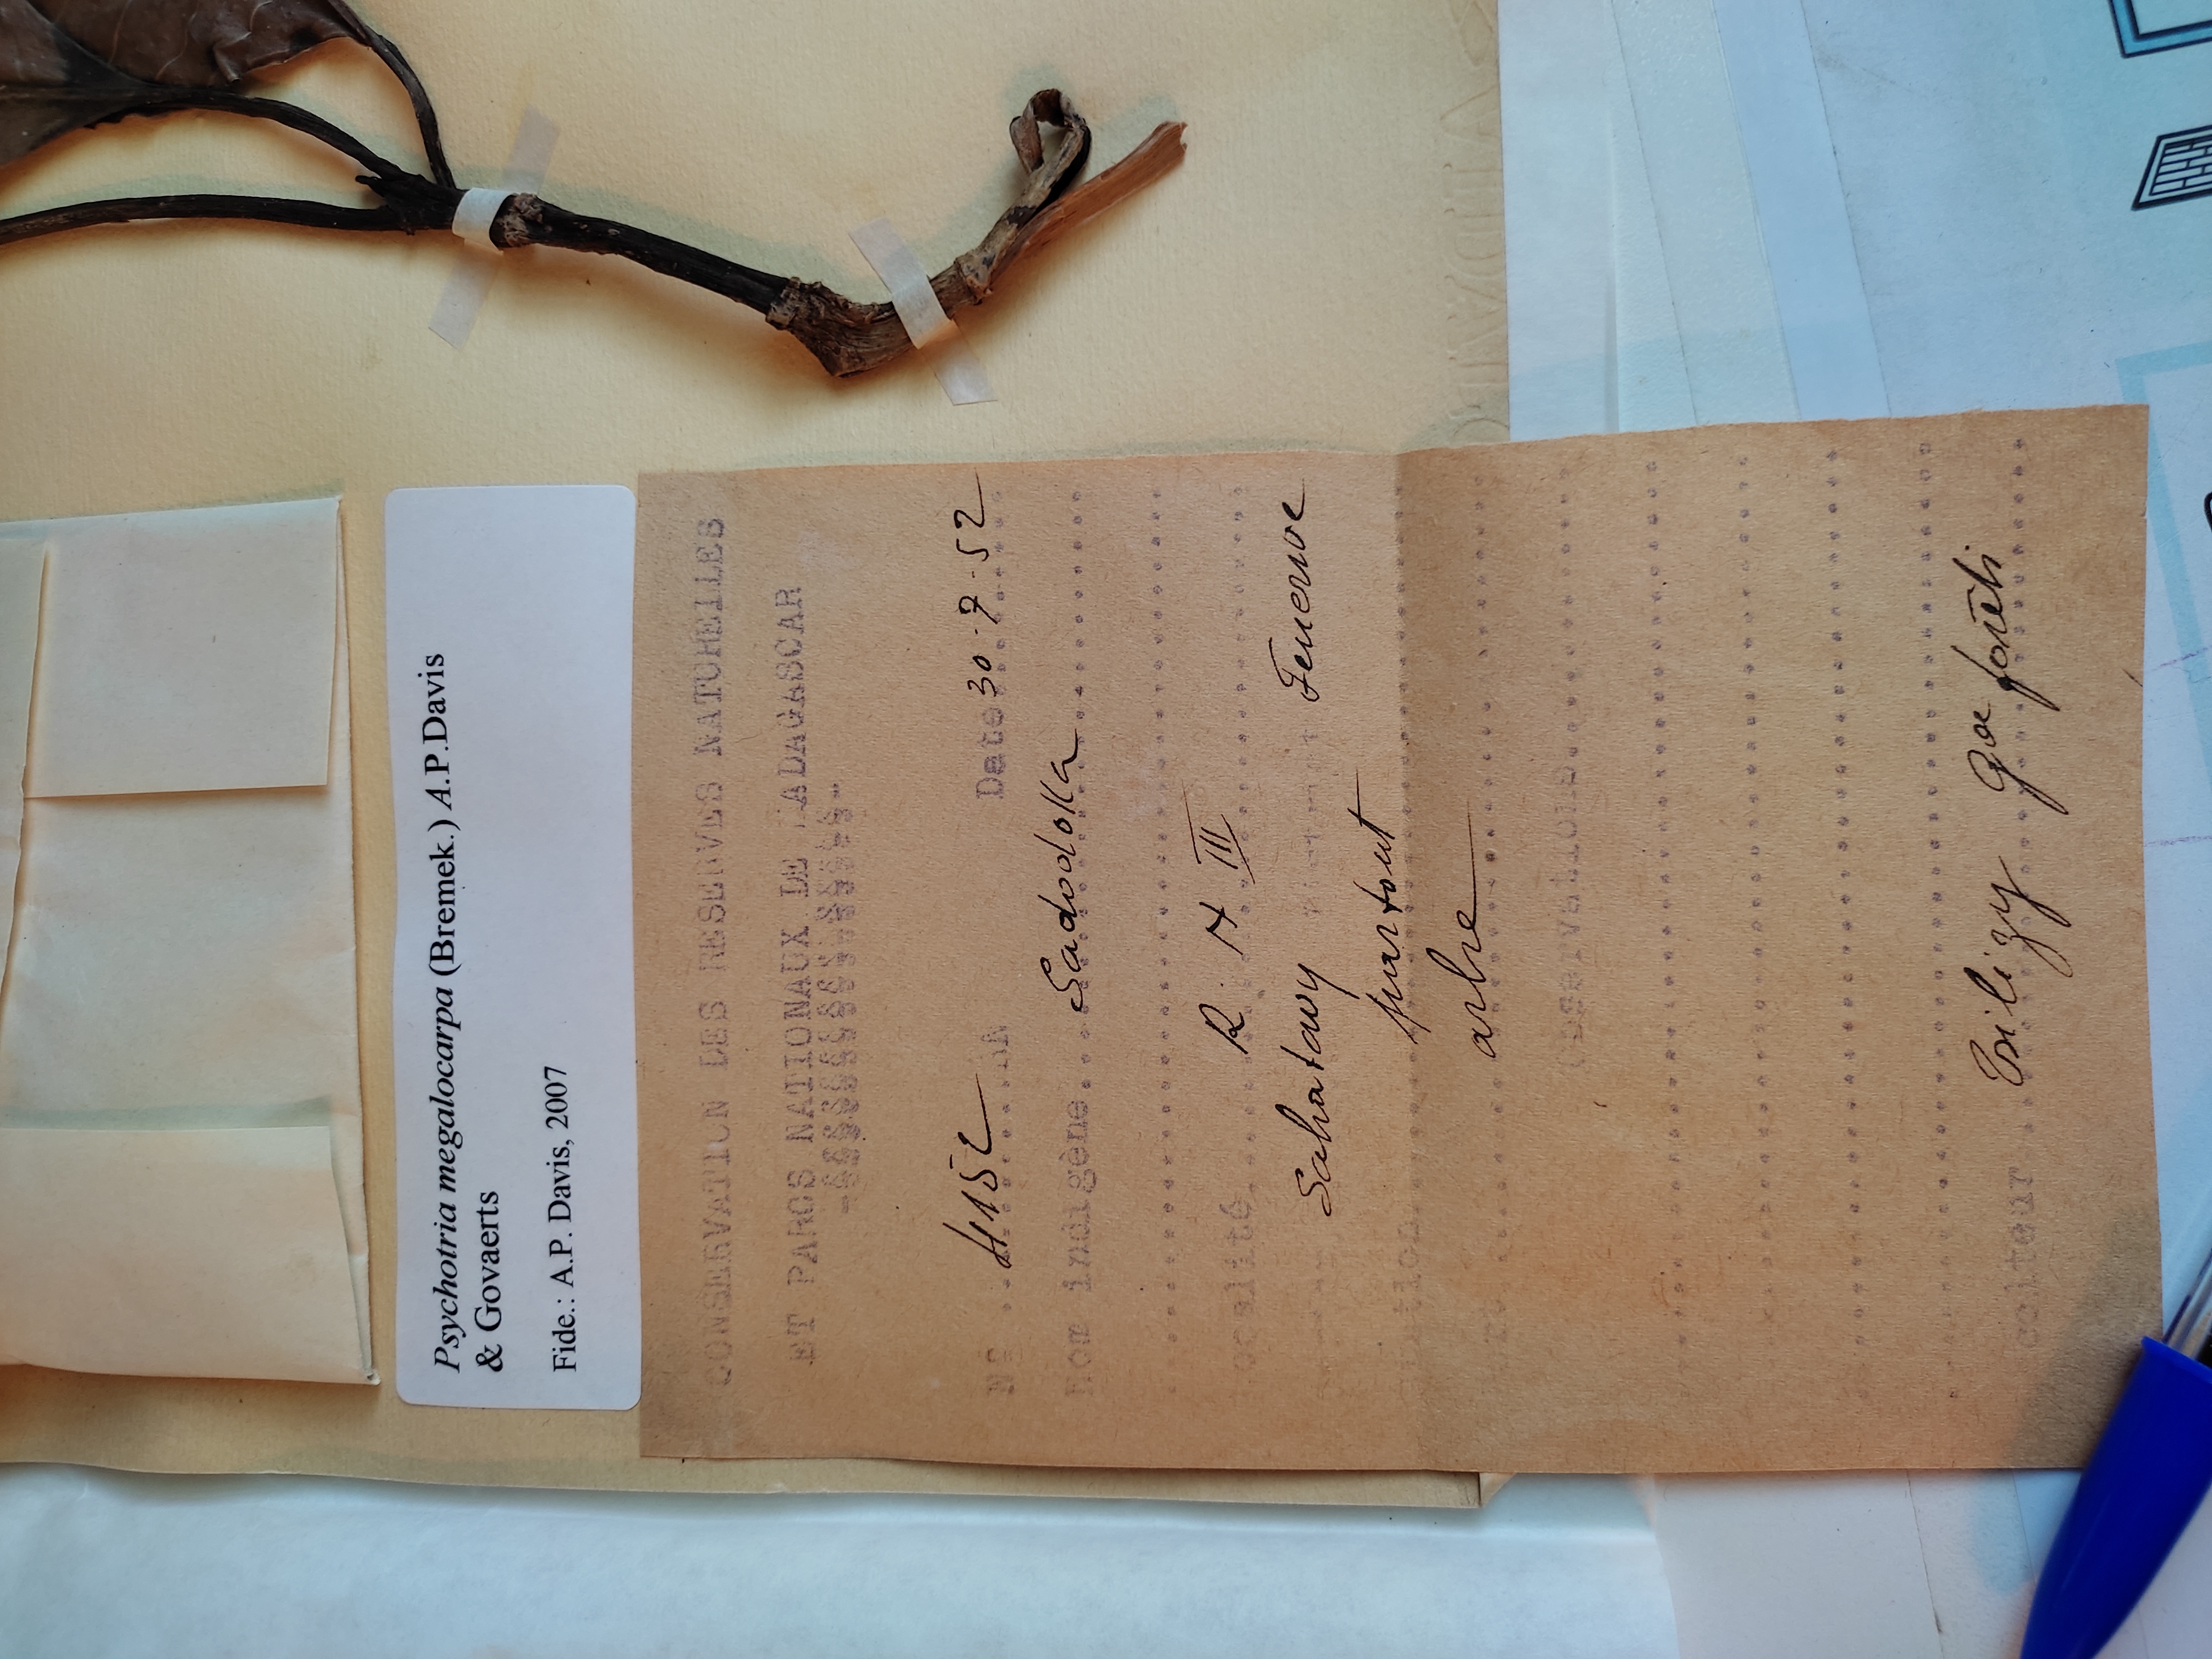 Psychotria megalocarpa (Bremek.) A.P.Davis
& Govaerts
Fide.: A.P. Davis, 2007
CONSERVATION DES RESERVES NATURELLES
ET PARCS NATIONAUX DE MADAGASCAR
N° 4152 RN Date 30-7-52
Nom indigène Sadodoka
Localité R N III
Sahatavy Fenerive
partout
arbre
Observations
Gde forêt